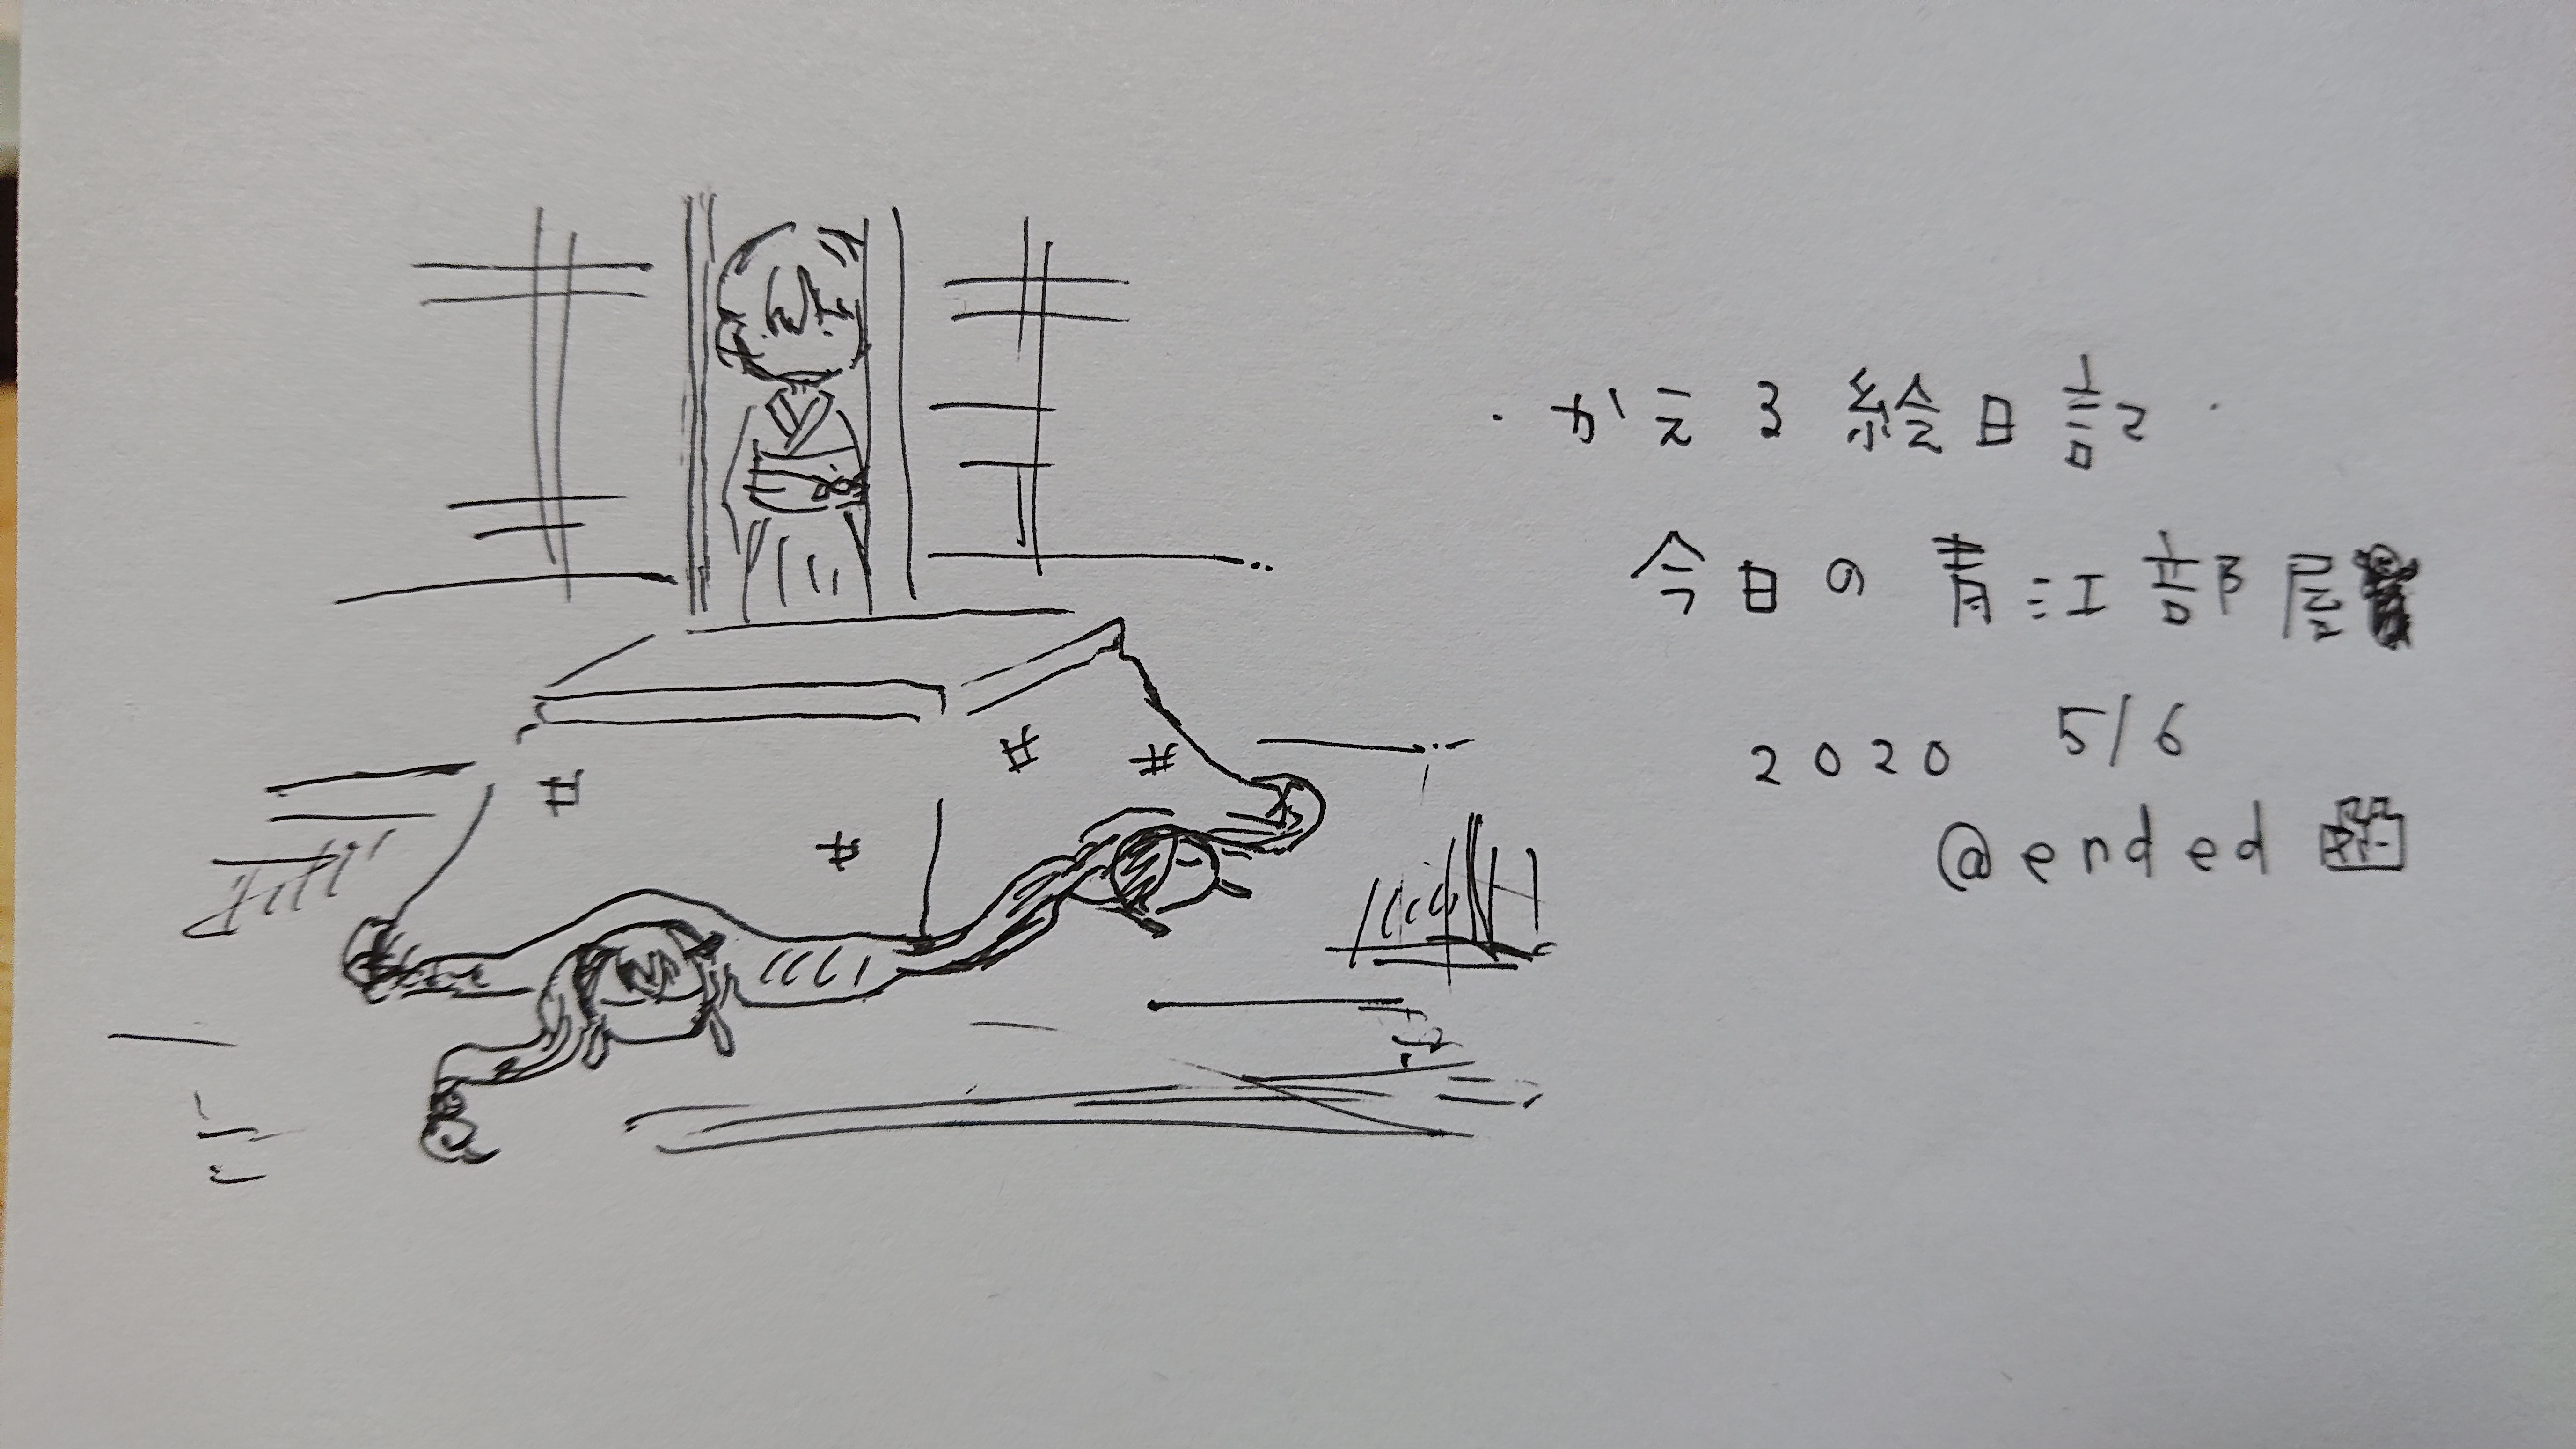 ・かえる絵日記・
今日の青江部屋
2020 5/6
@ended